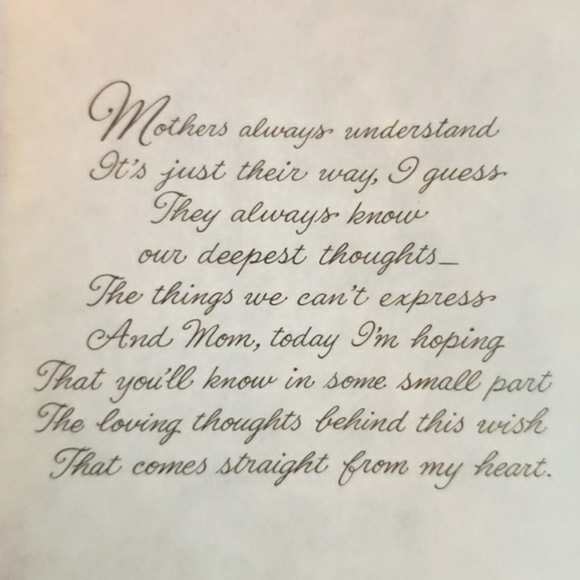 Mothers always understand
It's just their way, I guess
They always know
our deepest thoughts—
The things we can't express
And Mom, today I'm hoping
That you'll know in some small part
The loving thoughts behind this wish
That comes straight from my heart.